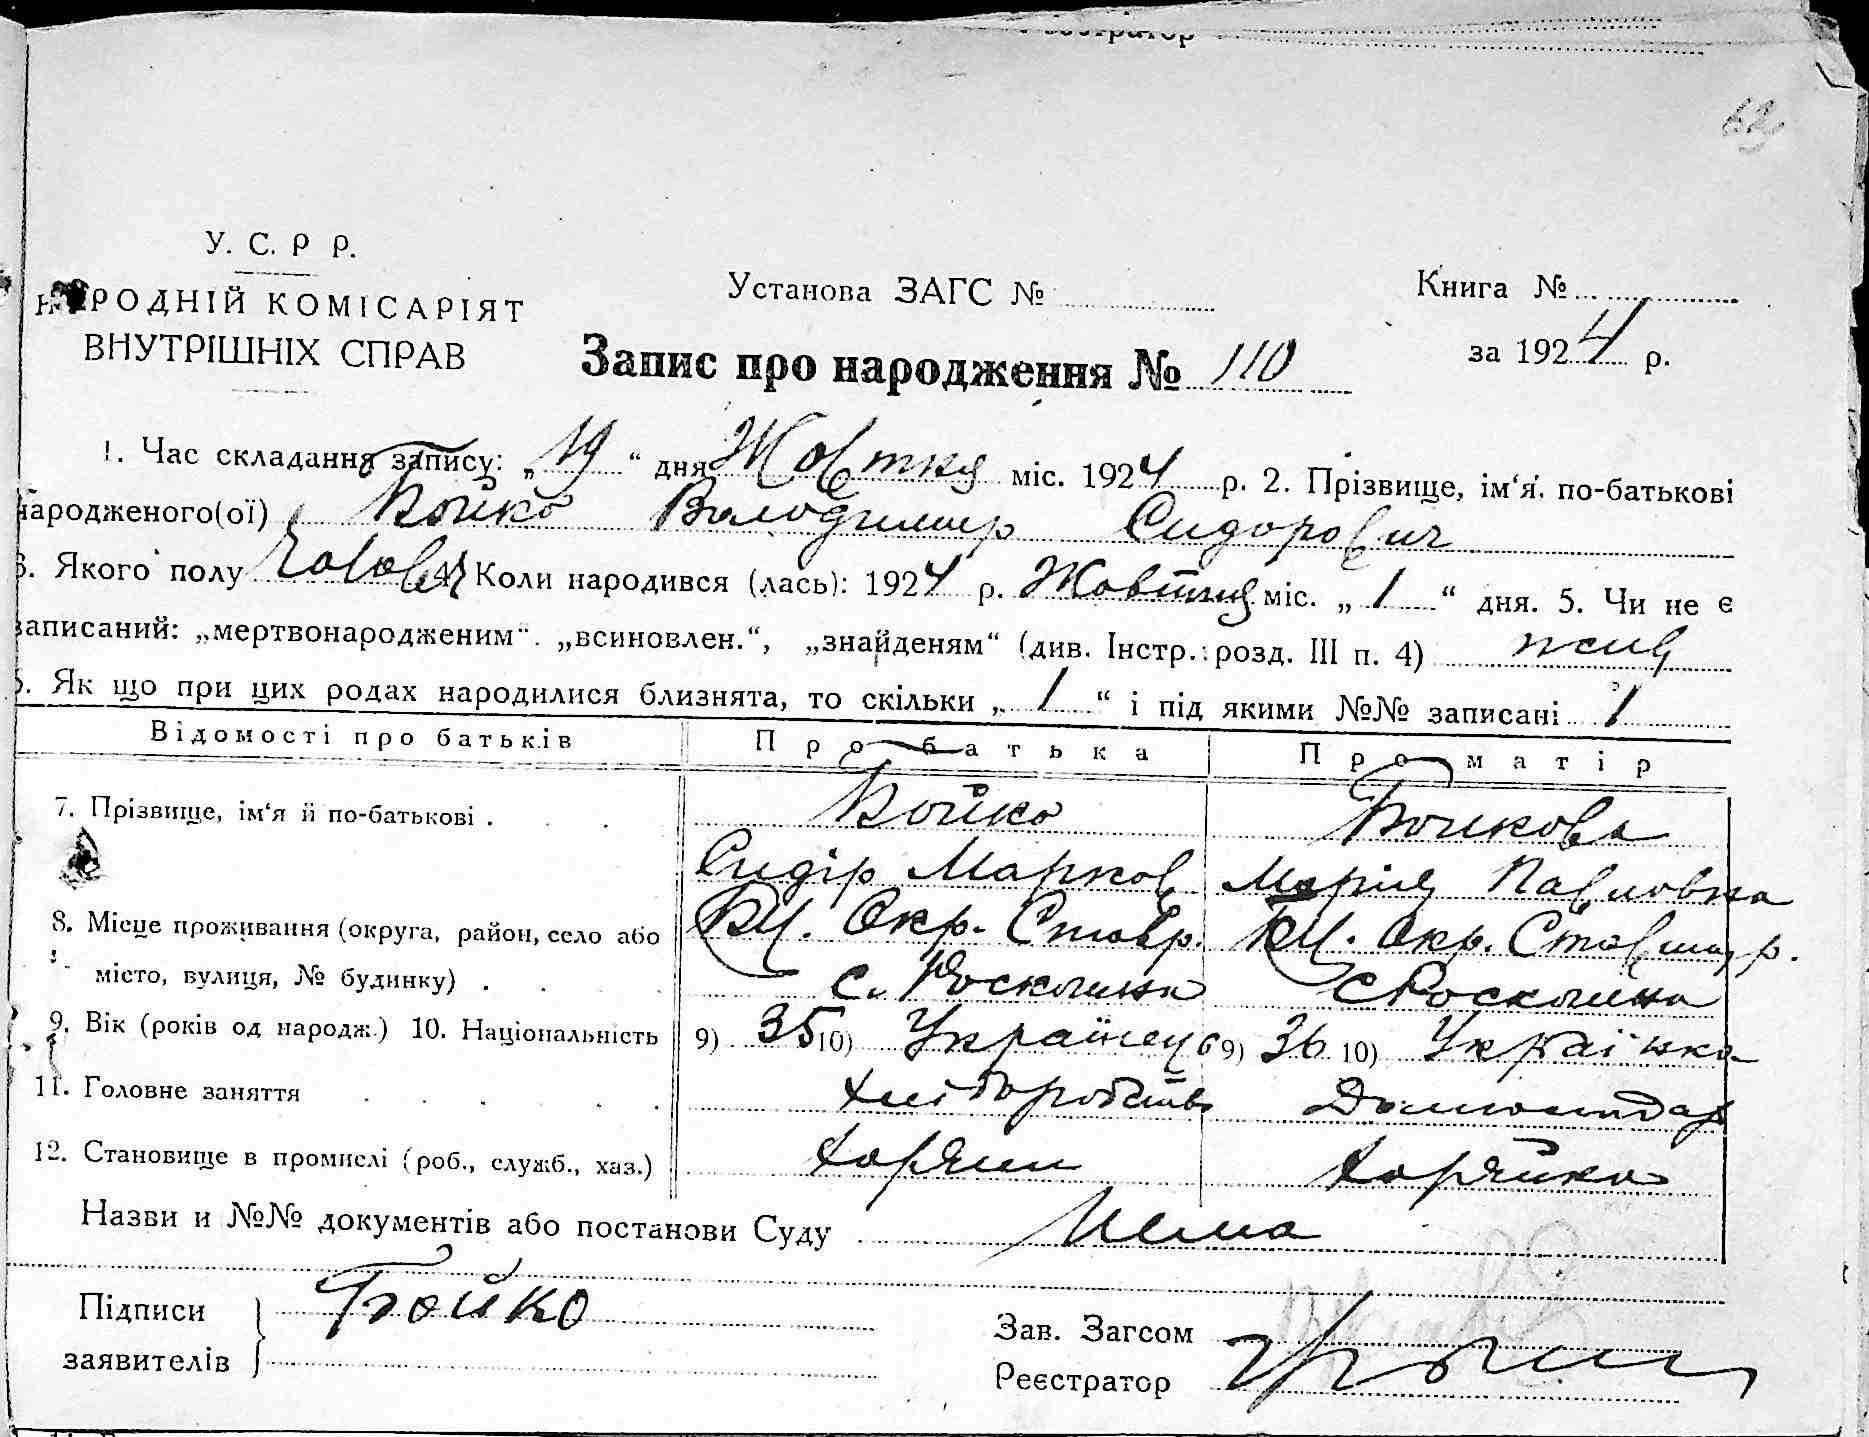 еєстратор
62
У. С. Р Р.
НАРОДНІЙ КОМІСАРІЯТ
ВНУТРІШНІХ СПРАВ
Установа ЗАГС №
Книга №
за 1924 р.
Запис про народження № 110
1. Час складання запису: „19“ дня Жовтня міс. 1924 р. 2. Прізвище, ім‘я, по-батькові
народженого(ої) Бойко Володимир Сидорович
3. Якого полу Чоловіч 4. Коли народився (лась): 1924 р. Жовтня міс. „1“ дня. 5. Чи не є
записаний: „мертвонародженим“. „всиновлен.“, „знайденям“ (див. Інстр.: розд. III п. 4) жив
6. Як що при цих родах народилися близнята, то скільки „1“ і під якими №№ записані 1
Відомості про батьків Про батька Про матір
7. Прізвище, ім‘я й по-батькові . Бойко Бойкова
Сидір Марков Марія Павловна
8. Місце проживання (округа, район, село або БЦ. Окр. Ставр. БЦ. Окр. Ставищ р.
місто, вулиця, № будинку) . с. Роскошна с Роскошна
9. Вік (років од народж.) 10. Національність 9) 35 10) Українець 9) 36 10) Українка
11. Головне заняття Хліборобство Домогоспдар
12. Становище в промислі (роб., служб., хаз.) Хозяин Хозяйка
Назви и №№ документів або постанови Суду Нема
Підписи Бойко
заявителів
Зав. Загсом
Реєстратор